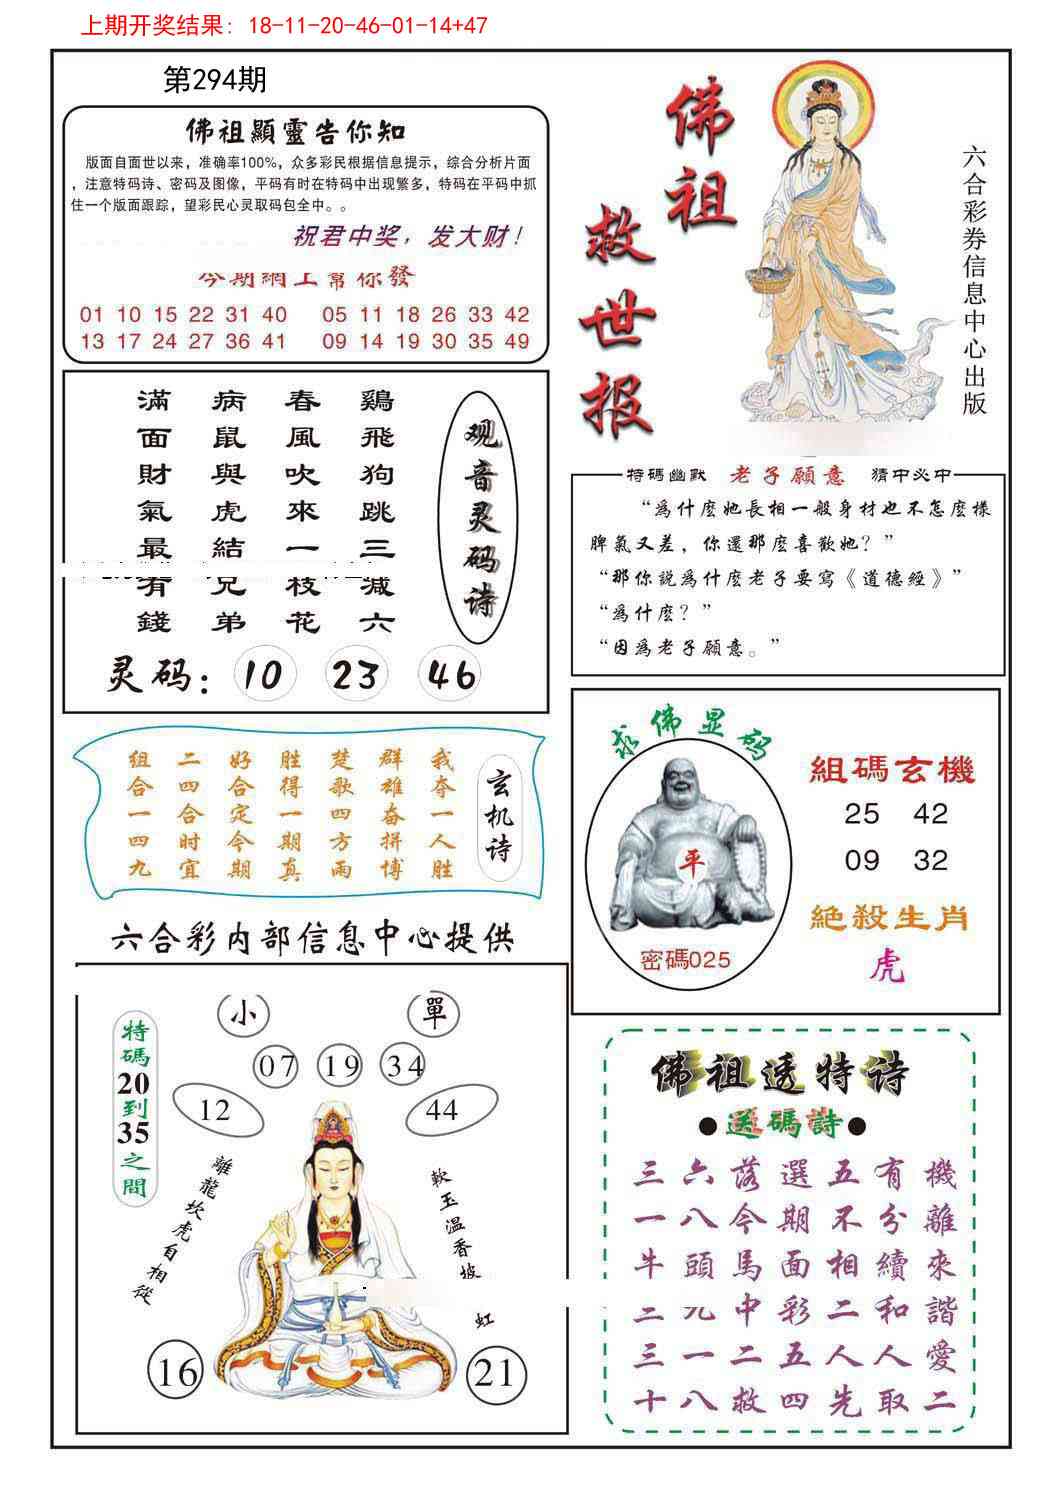 上期开奖结果: 18-11-20-46-01-14+47
第294期
佛祖顯靈告你知
版面自面世以来，准确率100%，众多彩民根据信息提示，综合分析片面
，注意特码诗、密码及图像，平码有时在特码中出现繁多，特码在平码中抓
住一个版面跟踪，望彩民心灵取码包全中。。
祝君中奖，发大财！
今期網上幫你發
01 10 15 22 31 40 05 11 18 26 33 42
13 17 24 27 36 41 09 14 19 30 35 49
佛祖
救世报
六合彩券信息中心出版
观音灵码诗
鷄飛狗跳三减六
春風吹來一枝花
病鼠與虎結兄弟
滿面財氣最有錢
灵码：10 23 46
特碼幽默 老子願意 猜中必中
“爲什麽她長相一般身材也不怎麽樣
脾氣又差，你還那麽喜歡她？”
“那你説爲什麽老子要寫《道德經》”
“爲什麽？”
“因爲老子願意。”
玄机诗
我夺一人胜
群雄奋拼博
楚歌四方雨
胜得一期真
好合定今期
二四合时宜
组合一四九
求佛显码
平
密碼025
組碼玄機
25 42
09 32
絶殺生肖
虎
六合彩内部信息中心提供
小 單
07 19 34
12 44
特碼20到35之間
離龍坎虎自相從
軟玉温香坡
虹
16 21
佛祖透特诗
●送碼詩●
三六落選五有機
一八今期不分離
牛頭馬面相續來
二九中彩二和諧
三一二五人人愛
十八救四先取二